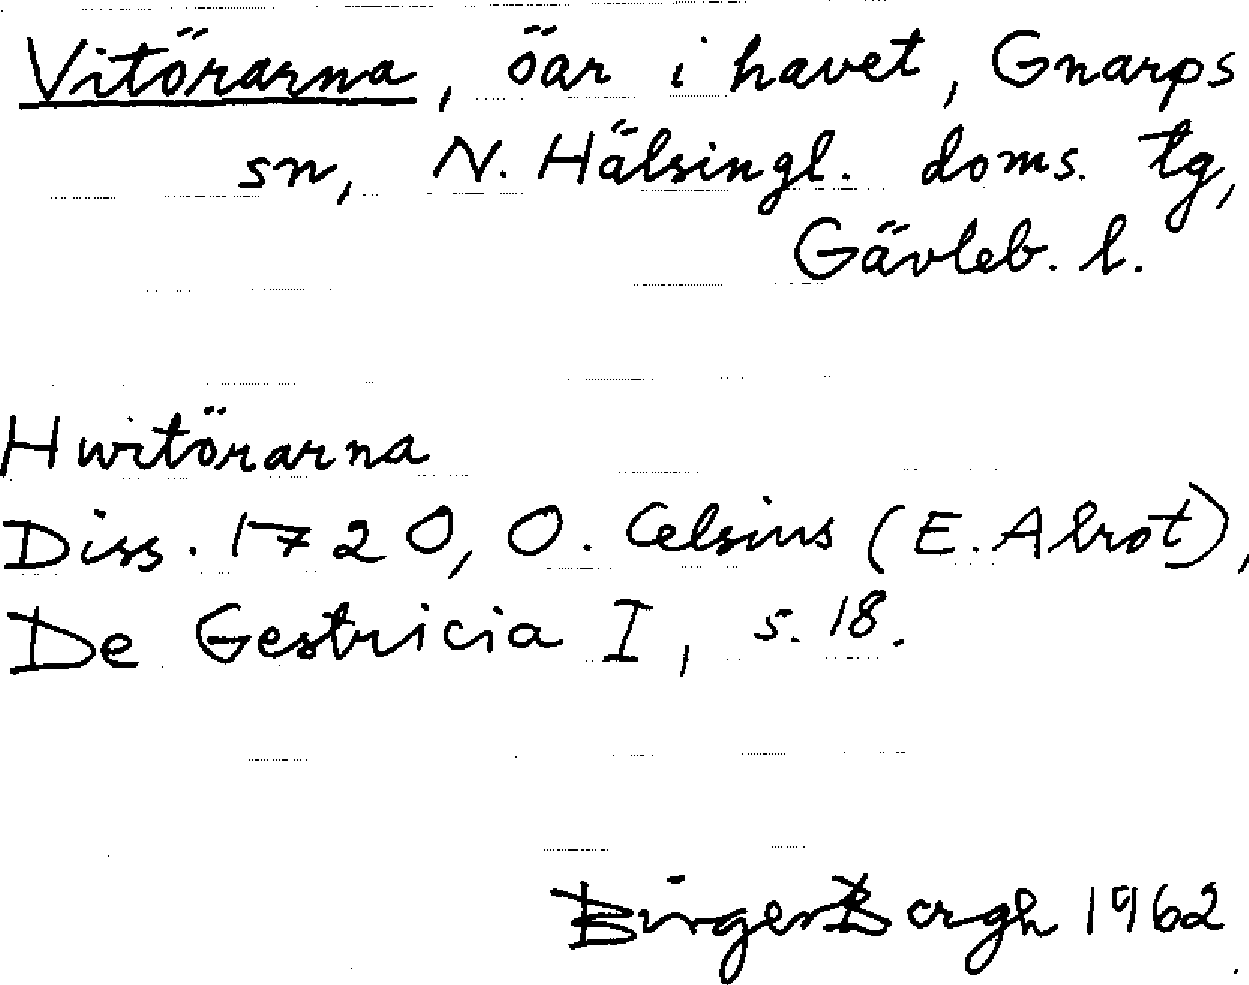 Vitörarna, öar i havet, Gnarps
sn, N. Hälsingl. doms. tg,
Gävleb. l.
Hwitörarna
Diss. 1720, O. Celsius (E. Alrot),
De Gestricia I, s. 18.
Birger Bergh 1962